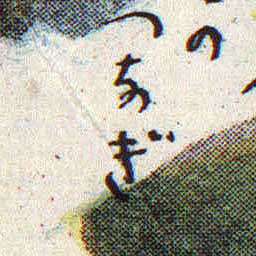 の
つなぎ